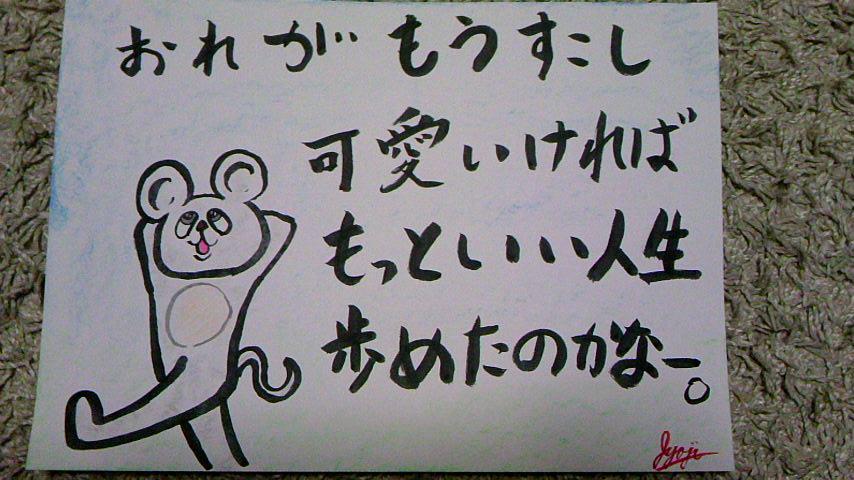 おれがもうすこし
可愛いければ
もっといい人生
歩めたのかなー。
Jyoji